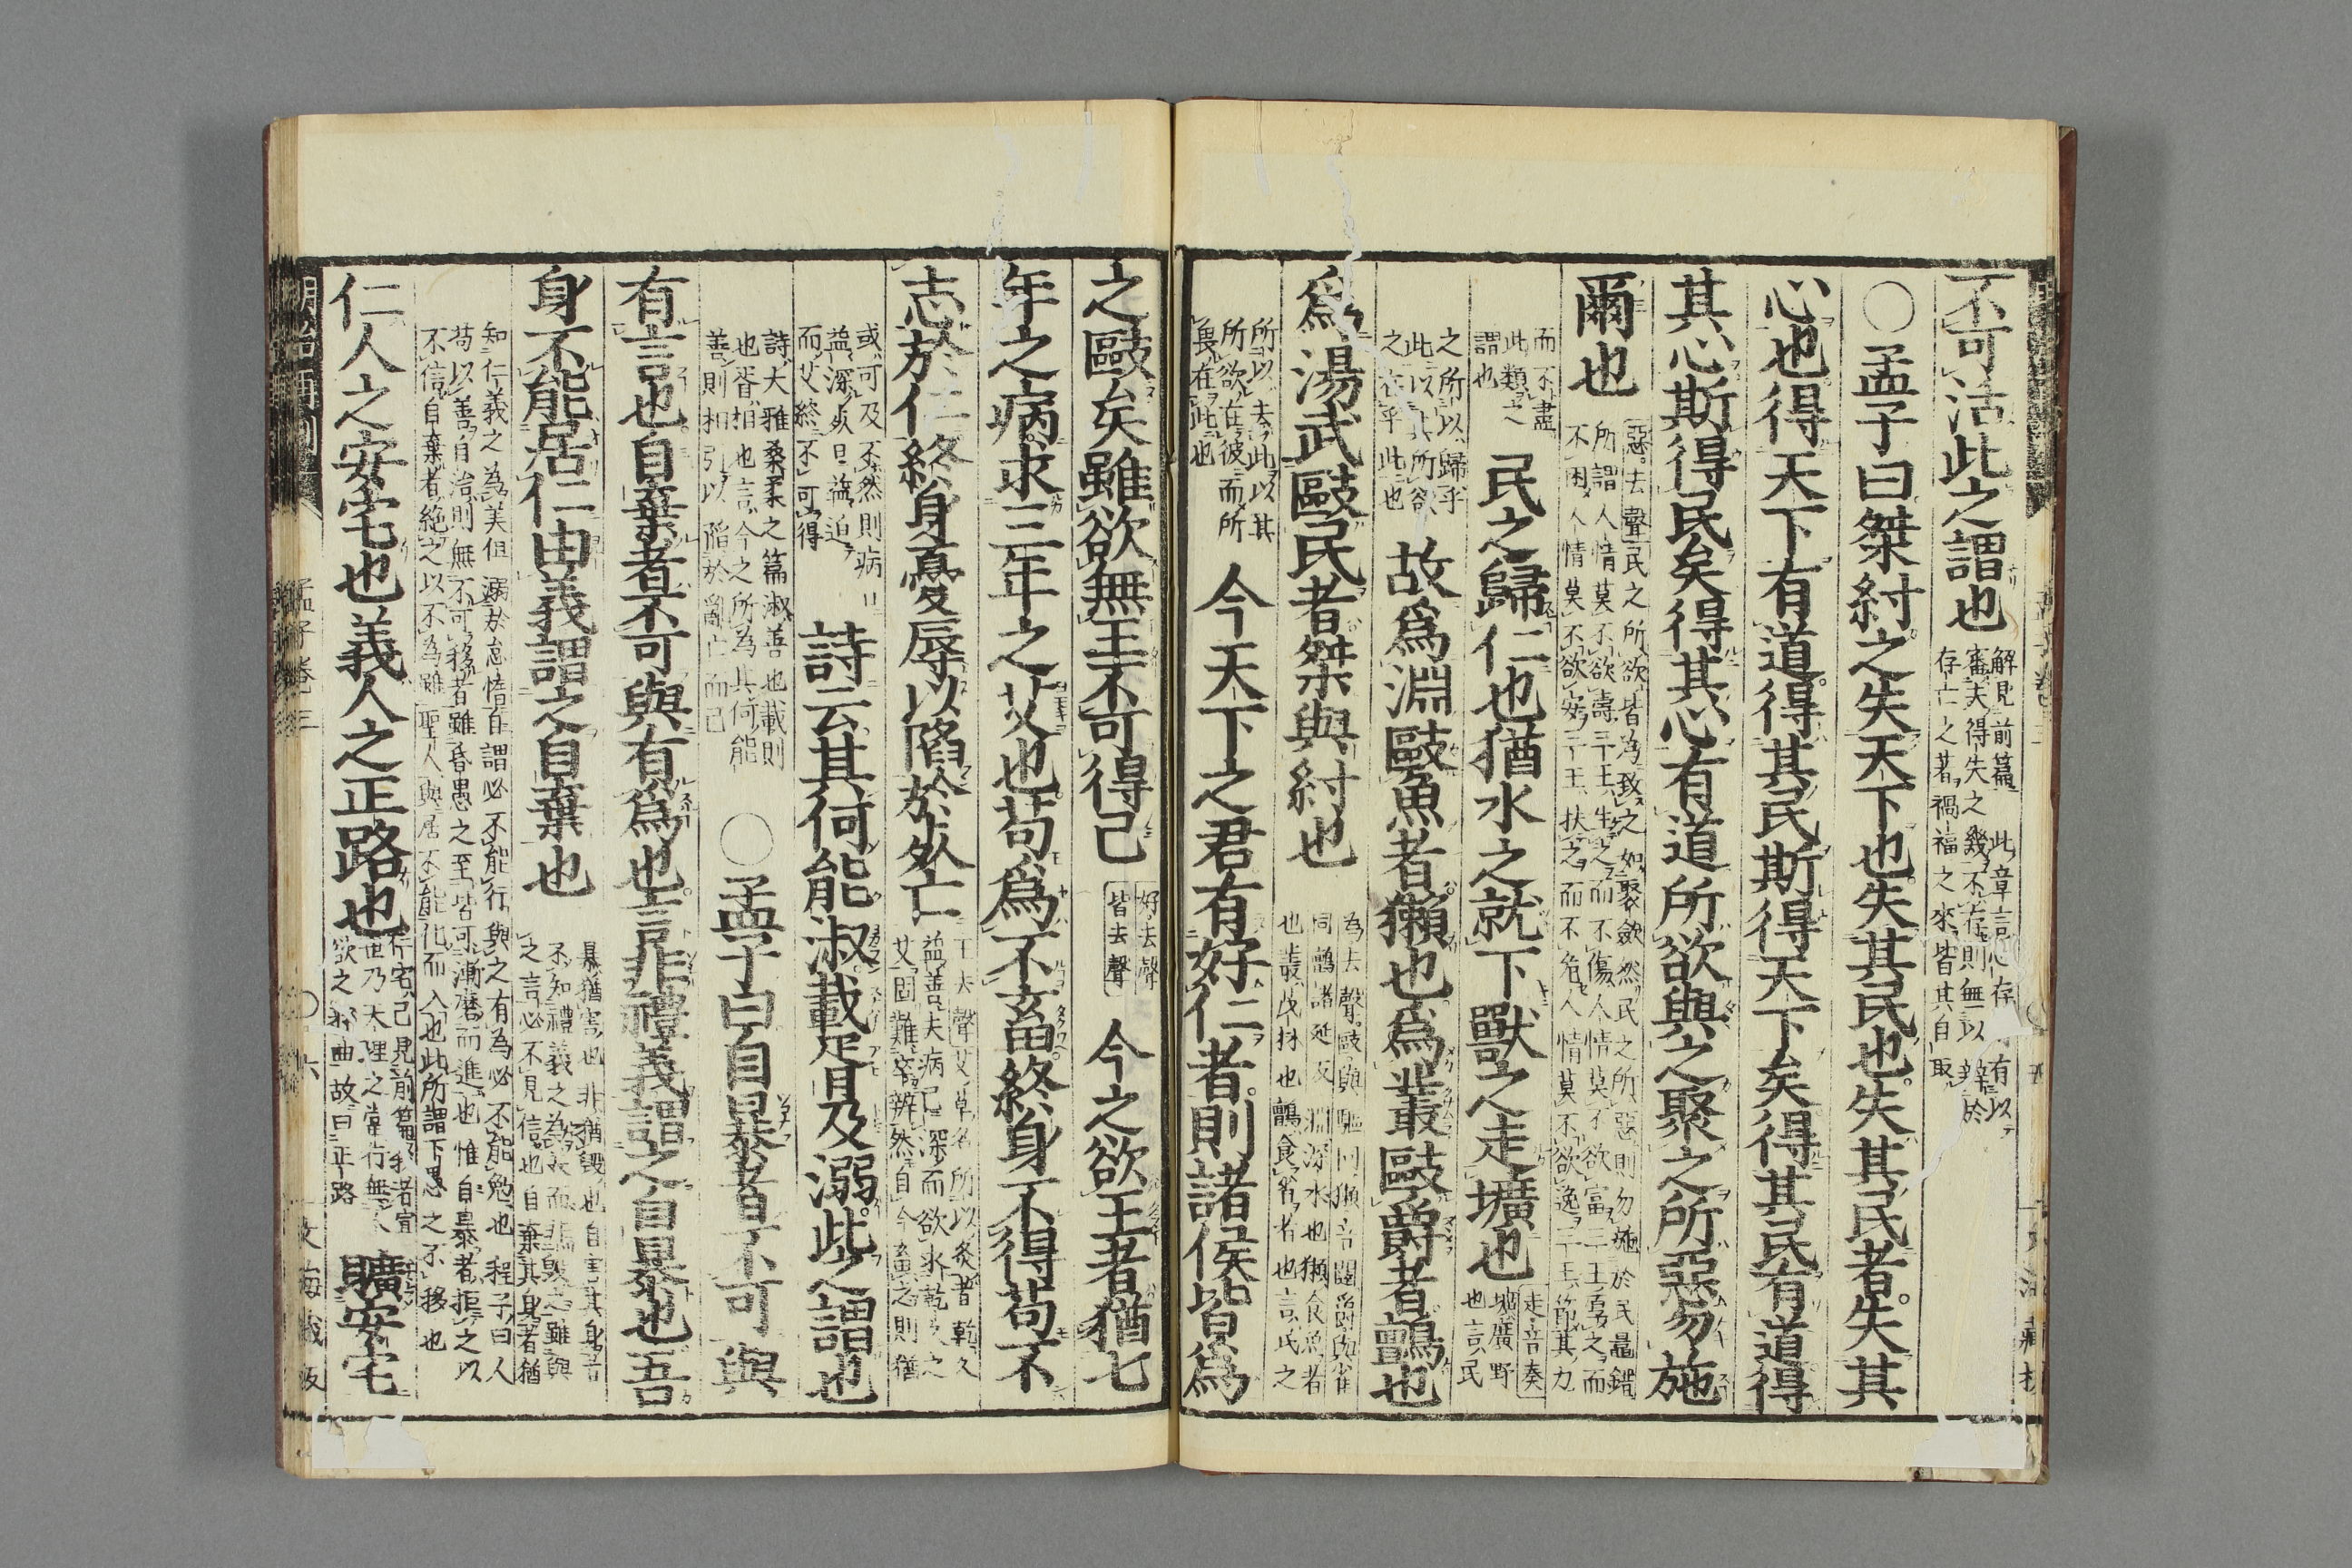 不可活此之謂也
解見前篇 此章言心存 有以
審夫得失之幾不存則無以辨於
存亡之著禍福之來皆其自取
○孟子曰桀紂之失天下也失其民也失其民者失其
心也得天下有道得其民斯得天下矣得其民有道得
其心斯得民矣得其心有道所欲與之聚之所惡勿施
爾也
惡去聲民之所欲皆為致之如聚斂然民之所惡則勿施於民鼂錯
所謂人情莫不欲壽三王生之而不傷人情莫不欲富三王厚之而
不困人情莫不欲安三王扶之而不危人情莫不欲逸三王節其力
而不盡
此類之
謂也
民之歸仁也猶水之就下獸之走壙也
走音奏
壙廣野
也言民
之所以歸乎
此以其所欲
之在乎此也
故爲淵敺魚者獺也爲叢敺爵者鸇也
爲湯武敺民者桀與紂也
為去聲敺與驅同獺音闥爵與雀
同鸇諸延反淵深水也獺食魚者
也叢茂林也鸇食雀者也言民之
所以去此以其
所欲在彼而所
畏在此也
今天下之君有好仁者則諸侯皆爲
之敺矣雖欲無王不可得已
好去聲
皆去聲
今之欲王者猶七
年之病求三年之艾也苟爲不畜終身不得苟不
志於仁終身憂辱以陷於死亡
王去聲艾草名所以灸者乾久
益善夫病已深而欲求乾久之
艾固難卒辨然自今畜之則猶
或可及不然則病日
益深死日益迫
而艾終不可得
詩云其何能淑載胥及溺此之謂也
詩大雅桑柔之篇淑善也載則
也胥相也言今之所為其何能
善則相引以陷於亂亡而已
○孟子曰自暴者不可與
有言也自棄者不可與有爲也言非禮義謂之自暴也吾
身不能居仁由義謂之自棄也
暴猶害也非猶毀也自害其身者
不知禮義之為美而非毀之雖與
之言必不見信也自棄其身者猶
知仁義之為美但溺於怠惰自謂必不能行與之有為必不能勉也 程子曰人
苟以善自治則無不可移者雖昏愚之至皆可漸磨而進也惟自暴者拒之以
不信自棄者絶之以不為雖聖人與居不能化而入也此所謂下愚之不移也
仁人之安宅也義人之正路也
仁宅已見前篇義者宜
也乃天理之當行無人
欲之邪曲故曰正路
曠安宅
孟子卷三